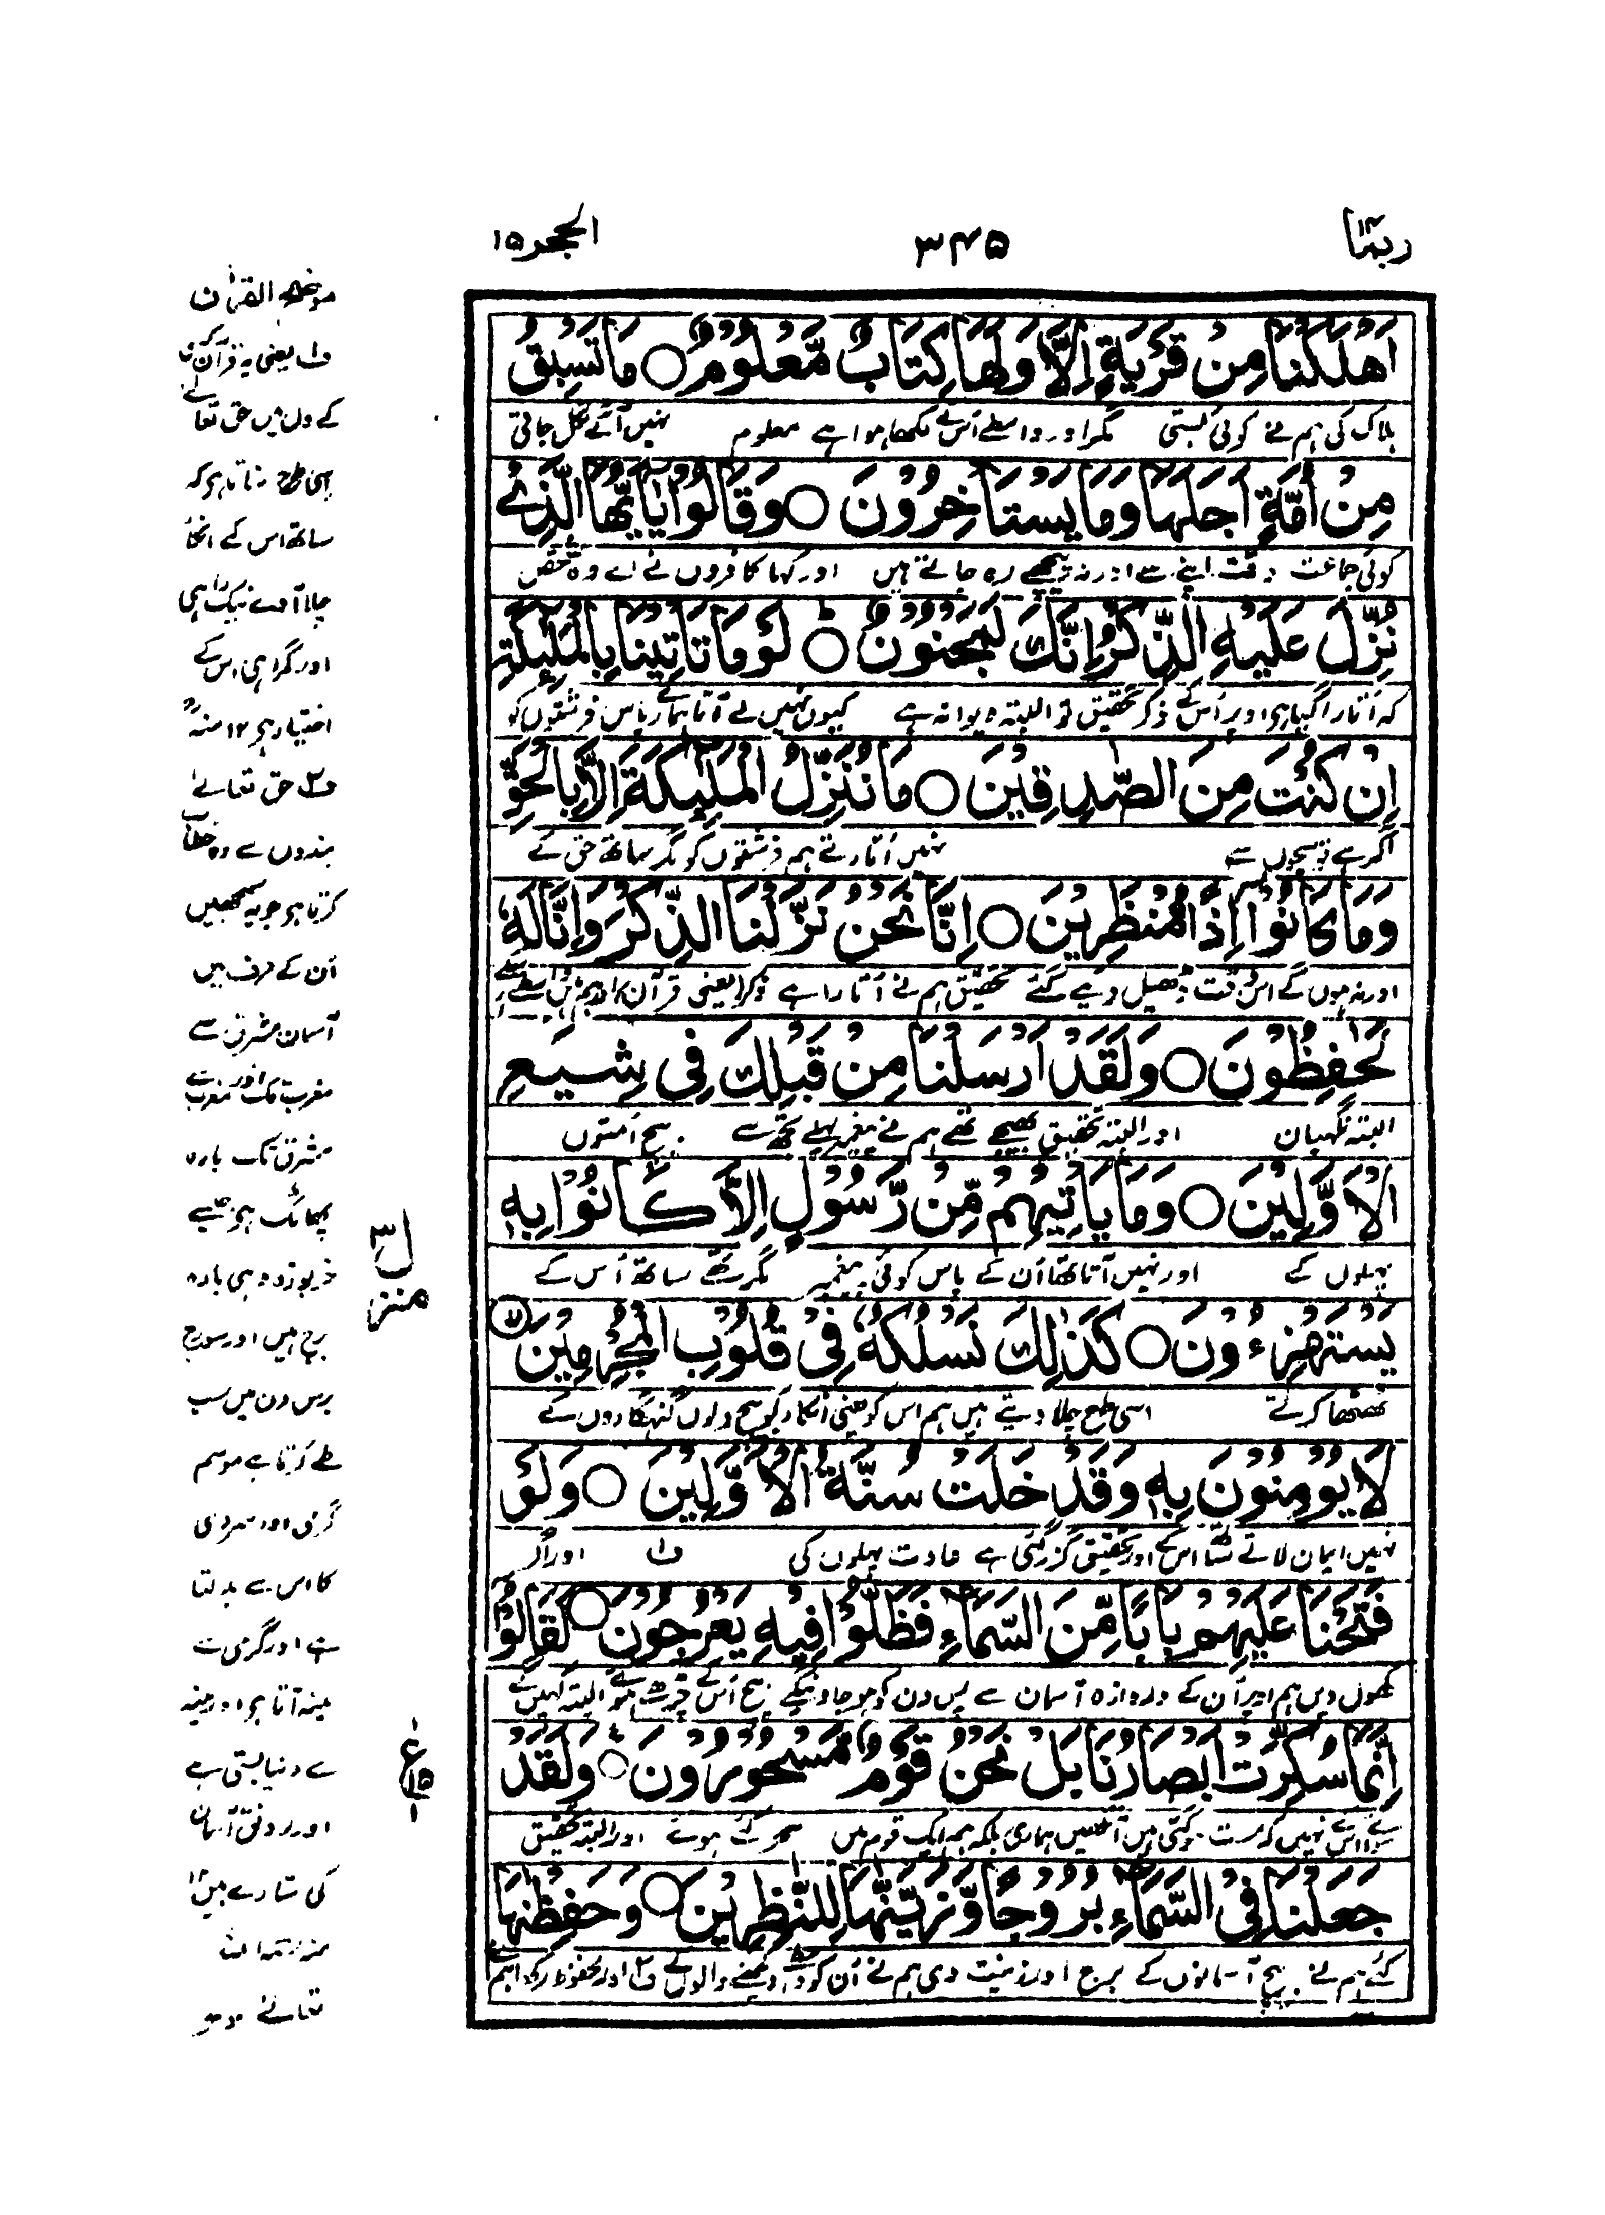 ربما ۱۴
۳۴۵
الحجر ۱۵
اَهْلَكْنَا مِنْ قَرْيَةٍ اِلَّا وَلَهَا كِتَابٌ مَّعْلُوْمٌ ○ مَا تَسْبِقُ
ہلاک کی ہم نے کوئی بستی مگر اور واسطے اُس کے لکھا ہوا ہے معلوم نہیں آگے نکل جاتی
مِنْ اُمَّةٍ اَجَلَهَا وَمَا يَسْتَاْخِرُوْنَ ○ وَقَالُوْا يٰۤاَيُّهَا الَّذِيْ
کوئی جماعت وقت اپنے سے اور نہ پیچھے رہ جاتے ہیں اور کہا کافروں نے اے وہ شخص
نُزِّلَ عَلَيْهِ الذِّكْرُ اِنَّكَ لَمَجْنُوْنٌ ○ لَوْ مَا تَاْتِيْنَا بِالْمَلٰٓئِكَةِ
کہ اُتارا گیا ہی اوپر اُس کے ذکر تحقیق تو البتہ دیوانہ ہے کیوں نہیں لے آتا ہمارے پاس فرشتوں کو
اِنْ كُنْتَ مِنَ الصّٰدِقِيْنَ ○ مَا نُنَزِّلُ الْمَلٰٓئِكَةَ اِلَّا بِالْحَقِّ
اگر ہے تو سچوں سے نہیں اُتارتے ہم فرشتوں کو مگر ساتھ حق کے
وَمَا كَانُوْۤا اِذًا مُّنْظَرِيْنَ ○ اِنَّا نَحْنُ نَزَّلْنَا الذِّكْرَ وَاِنَّا لَهٗ
اور نہ ہوں گے اس وقت ڈھیل دیے گئے تحقیق ہم نے اُتارا ہے ذکر یعنی قرآن اور ہم اس واسطے
لَحٰفِظُوْنَ ○ وَلَقَدْ اَرْسَلْنَا مِنْ قَبْلِكَ فِيْ شِيَعِ
البتہ نگہبان اور البتہ تحقیق بھیجے تھے ہم نے پیغمبر پہلے تجھ سے بیچ اُمتوں
الْاَوَّلِيْنَ ○ وَمَا يَاْتِيْهِمْ مِّنْ رَّسُوْلٍ اِلَّا كَانُوْا بِهٖ
پہلوں کے اور نہیں آتا تھا اُن کے پاس کوئی پیغمبر مگر تھے ساتھ اُس کے
يَسْتَهْزِءُوْنَ ○ كَذٰلِكَ نَسْلُكُهٗ فِيْ قُلُوْبِ الْمُجْرِمِيْنَ
ٹھٹھا کرتے اسی طرح چلا دیتے ہیں ہم اس کو یعنی انکار کو بیچ دلوں گنہگاروں کے
لَا يُؤْمِنُوْنَ بِهٖ وَقَدْ خَلَتْ سُنَّةُ الْاَوَّلِيْنَ ○ وَلَوْ
نہیں ایمان لاتے ساتھ اس کے اور تحقیق گزر گئی ہے عادت پہلوں کی ف۱ اور اگر
فَتَحْنَا عَلَيْهِمْ بَابًا مِّنَ السَّمَآءِ فَظَلُّوْا فِيْهِ يَعْرُجُوْنَ ○ لَقَالُوْۤا
کھول دیں ہم اوپر اُن کے دروازہ آسمان سے پس دن کو ہو جاویں گے بیچ اُس کے چڑھتے ہوئے البتہ کہیں گے
اِنَّمَا سُكِّرَتْ اَبْصَارُنَا بَلْ نَحْنُ قَوْمٌ مَّسْحُوْرُوْنَ ○ وَلَقَدْ
سوا اس کے نہیں کہ مست ہو گئی ہیں آنکھیں ہماری بلکہ ہم ایک قوم ہیں سحر کئے ہوئے اور البتہ تحقیق
جَعَلْنَا فِي السَّمَآءِ بُرُوْجًا وَّزَيَّنّٰهَا لِلنّٰظِرِيْنَ ○ وَحَفِظْنٰهَا
کئے ہم نے بیچ آسمانوں کے برج اور زینت دی ہم نے اُن کو واسطے دیکھنے والوں کے ف۲ اور محفوظ رکھا ہم نے
موضح القرآن
ف۱ یعنی یہ قرآن
کے دل میں حق تعالے
اسی طرح
ساتھ اس کے
چلا آوے نیک راہی
اور گمراہی اس کے
اختیار ہی ۱۲ منہ
ف۲ حق تعالے
بندوں سے وہ خطاب
کرتا ہی جو یہ سمجھیں
اُن کے عرف میں
آسمان مشرق سے
مغرب تک اور مغرب سے
مشرق تک بارہ
پھانک ہی جیسے
خربوزہ وہی بارہ
برج ہیں اور سورج
برس دن میں سب
طے کرتا ہے موسم
گرمی اور سردی
کا اس سے بدلتا
ہے اور گرمی سے
مینہ آتا ہی اور مینہ
سے دنیا بستی ہے
اور رونق آسمان
کی ستارے ہیں ۱۲
منہ رحمہ اللہ
تعالے
منزل ۳
ع ۱۵ ۱